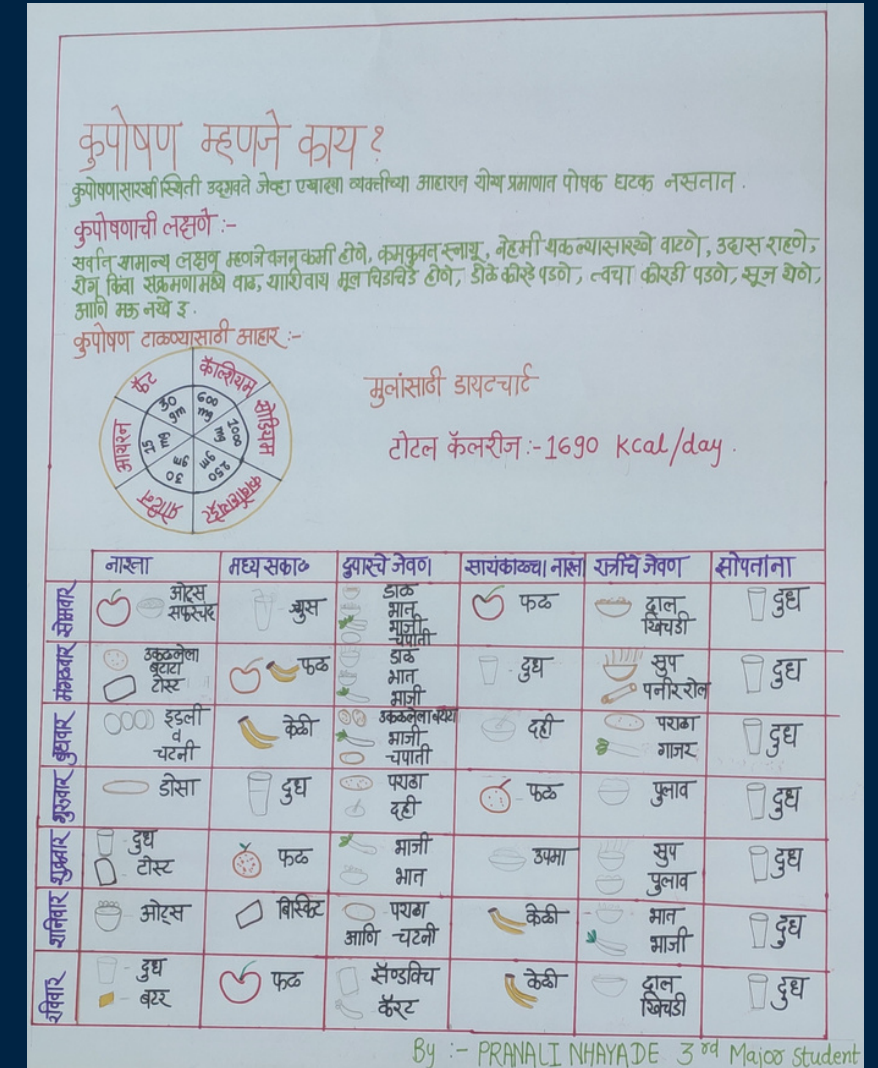 कुपोषण म्हणजे काय ?
कुपोषणासारखी स्थिती उद्भवते जेव्हा एखाद्या व्यक्तीच्या आहारात योग्य प्रमाणात पोषक घटक नसतात .
कुपोषणाची लक्षणे :-
सर्वात सामान्य लक्षण म्हणजे वजन कमी होणे, कमकुवत स्नायू, नेहमी थकल्यासारखे वाटणे, उदास राहणे,
रोग किंवा संक्रमणामध्ये वाढ, याशिवाय मूल चिडचिडे होणे, डोळे कोरडे पडणे, त्वचा कोरडी पडणे, सूज येणे,
आणि मऊ नखे इ .
कुपोषण टाळण्यासाठी आहार :-
फॅट 30 gm
कॅल्शियम 600 mg
सोडियम 1000 mg
कार्बोहायड्रेट 250 gm
प्रोटीन 30 gm
आयरन 15 mg
मुलांसाठी डायटचार्ट
टोटल कॅलरीज :- 1690 Kcal/day .
नास्ता मध्य सकाळ दुपारचे जेवण सायंकाळचा नास्ता रात्रीचे जेवण झोपतांना
सोमवार
ओट्स
सफरचंद
ज्युस
डाळ
भात
भाजी
चपाती
फळ
दाल
खिचडी
दुध
मंगळवार
उकळलेला
बटाटा
टोस्ट
फळ
डाळ
भात
भाजी
दुध
सुप
पनीर रोल
दुध
बुधवार
इडली
व
चटनी
केळी
उकळलेला
भाजी
चपाती
दही
पराठा
गाजर
दुध
गुरुवार
डोसा
दुध
पराठा
दही
फळ
पुलाव
दुध
शुक्रवार
दुध
टोस्ट
फळ
भाजी
भात
उपमा
सुप
पुलाव
दुध
शनिवार
ओट्स
बिस्किट
पराठा
आणि चटनी
केळी
भात
भाजी
दुध
रविवार
दुध
बटर
फळ
सॅण्डविच
कॅरट
केळी
दाल
खिचडी
दुध
By :- PRANALI NHAYADE 3rd Major Student